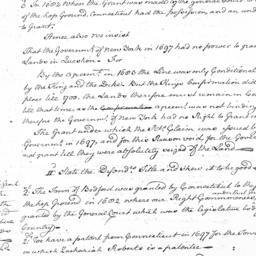 2. In 1602 when the Grant was made by the General Court
the hop Ground, Connecticut had the possession, and an und
to Grant.
Hence also we insist
That the Governmt. of New York in 1697 had no power to grant
Lands in Question. For
By the agreemt. in 1683 the Line was only Conditional
by the King and the Duke. But the Kings Confirmation
place till 1700. The Lands therefore must remain in Con
till that time as the agreemt. was not binding
therefore the Governmt. of New York had no Right to Grant
The Grant under which the Pts. Claim was issued
Governmt. in 1697, and for this Reason void for the
not grant till they were absolutely seized of the Land
II. State the Defendts. Title and Shew it to be good
1. The Town of Bedford was granted by Connecticut to the
antient
the hop Ground in 1602 where our Right Commences
granted by the General Court which was the Legislative
Country.
2. We have a patent from Connecticut in 1697 for the Town
in which Zachariah Roberts is a patentee